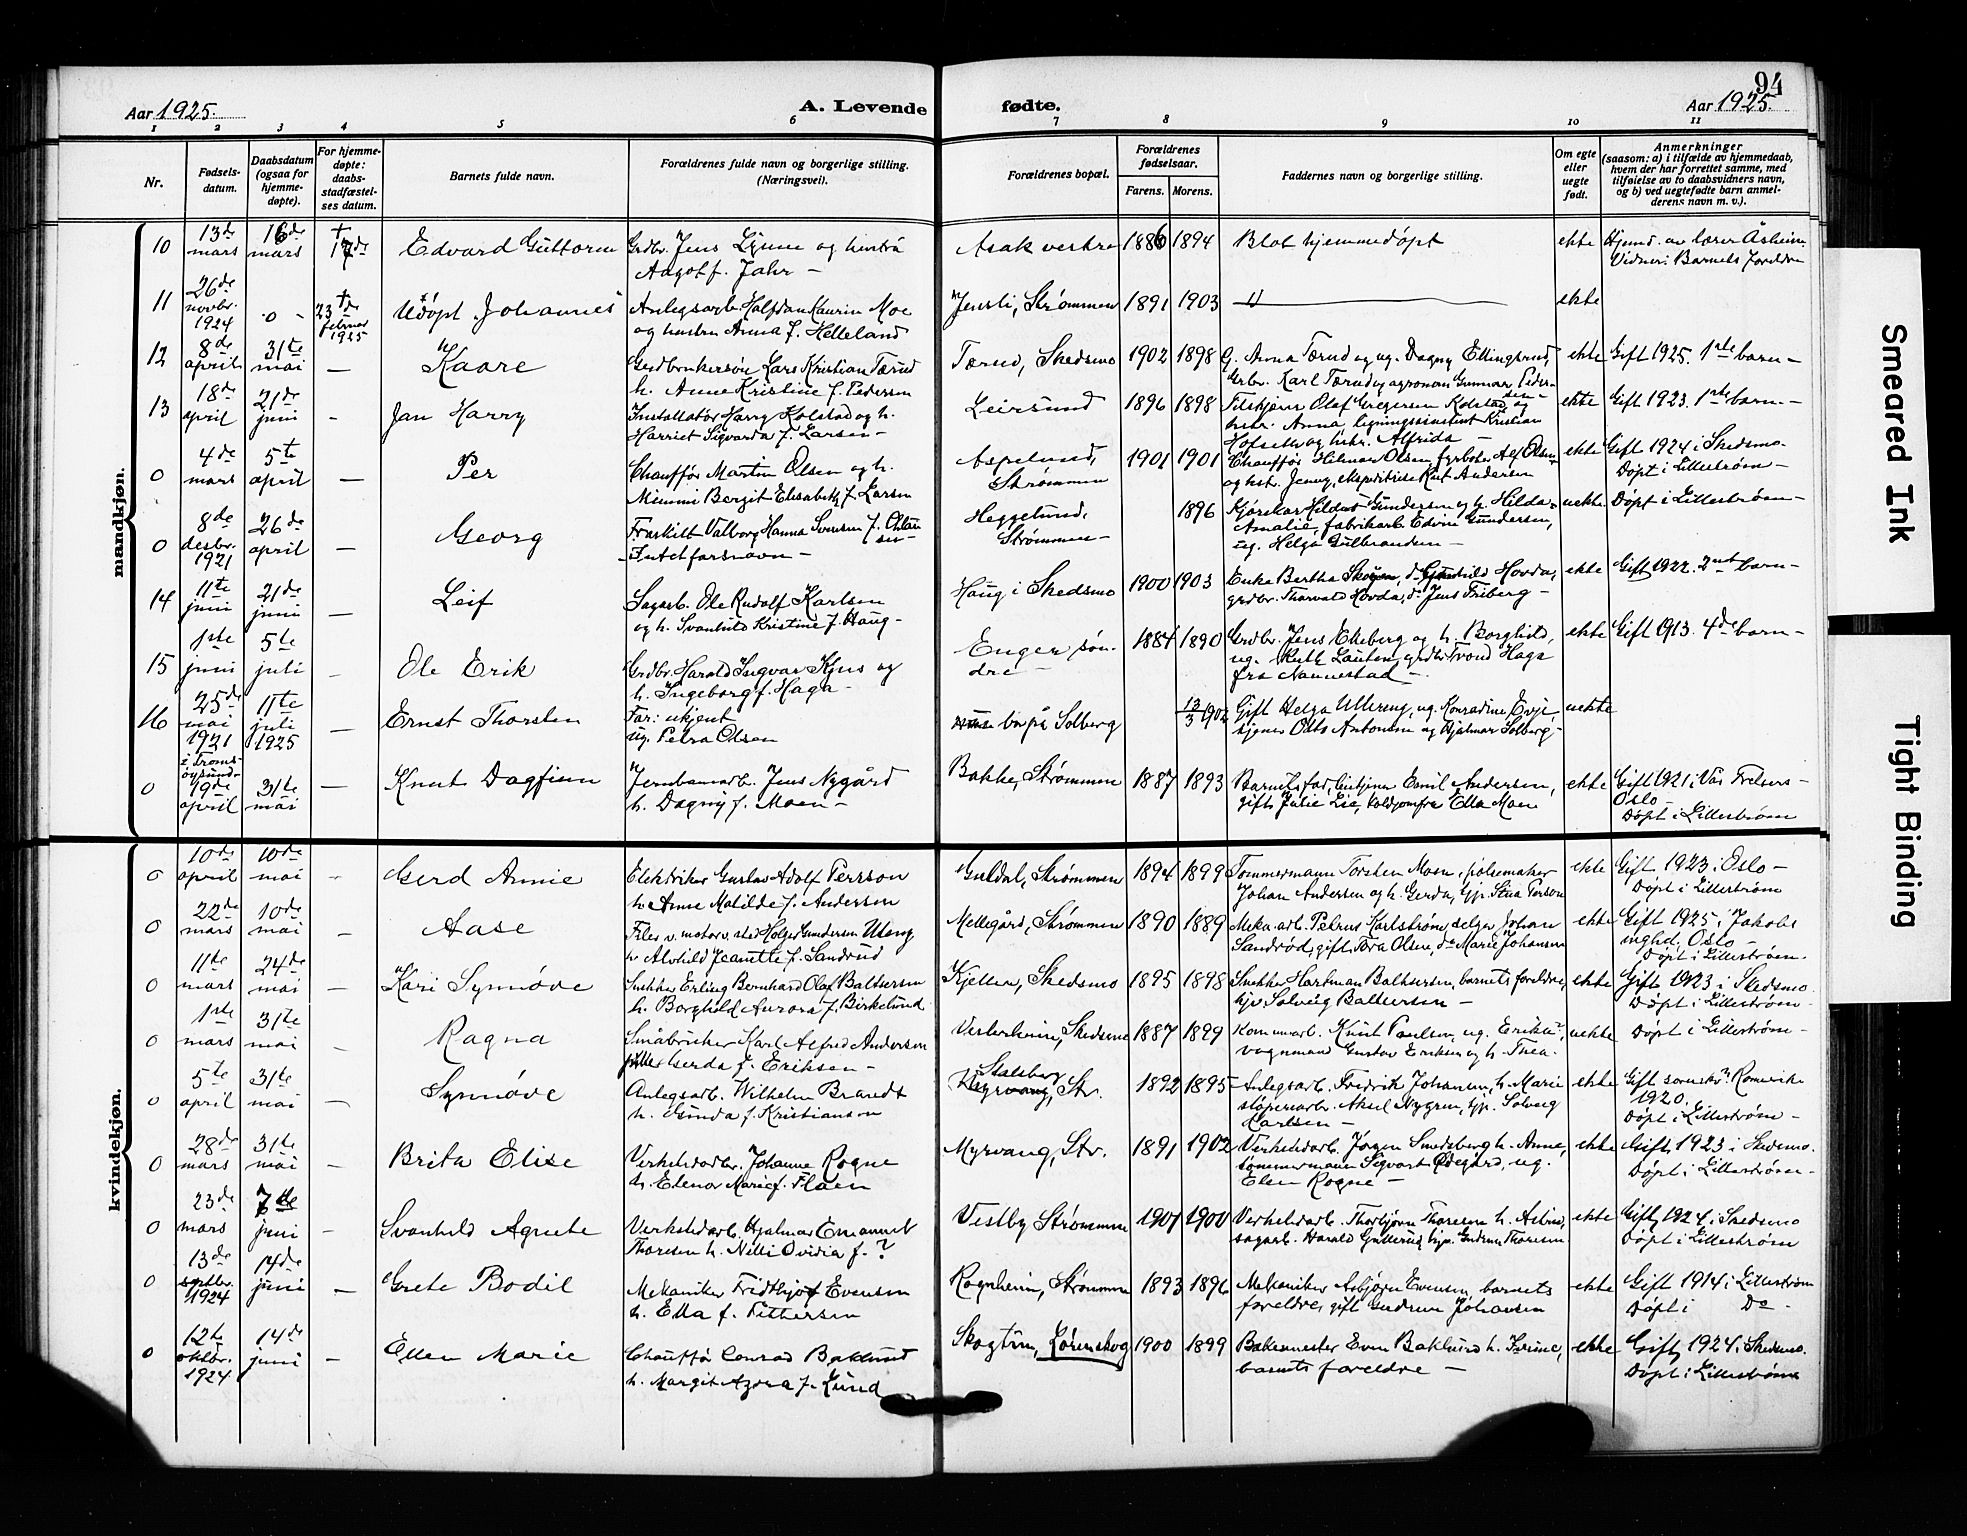 94
Aar 1925.
A. Levende fødte.
Aar 1925.
1 2 3 4 5 6 7 8 9 10 11
Nr.
Fødsels-
datum.
Daabsdatum
(ogsaa for
hjemme-
døpte).
For hjemme-
døpte:
daabs-
stadfæstel-
ses datum.
Barnets fulde navn.
Forældrenes fulde navn og borgerlige stilling.
(Næringsvei).
Forældrenes bopæl.
Forældrenes
fødselsaar.
Farens. Morens.
Faddernes navn og borgerlige stilling.
Om egte
eller
uegte
født.
Anmerkninger
(saasom: a) i tilfælde av hjemmedaab,
hvem der har forrettet samme, med
tilføielse av to daabsvidners navn,
og b) ved uegtefødte barn anmel-
derens navn m. v.).
mandkjøn.
10 13de mars 16de mars † 17de Edvard Guttorm
Grdbr. Jens og hustru
Aagot f. Jahr –
Asak vestre 1886 1894 Blot hjemmedøpt ekte
Hjemd. av lærer Åsheim
Vidner: Barnets foreldre
11 26de novbr. 1924 0 † 23de februar 1925 Udøpt "Johannes"
Anlegsarb. Halfdan Kaurin Moe
og hustru Anna f. Helleland
Jensli, Strømmen 1891 1903 " ekte
12 8de april 31te mai – Kaare
Gardbrukersøn Lars Kristian Tærud
h. Anne Kristine f. Pedersen
Tærud, Skedsmo 1902 1898
G. Anna Tærud og ug. Dagny Ellingsrud,
Grbr. Karl Tærud og agronom Gunnar Peder-
sen –
ekte Gift 1925. 1ste barn –
13 18de april 21de juni – Jan Harry
Installatør Harry Kolstad og h.
Harriet Sigvarda f. Larsen –
Leirsund 1896 1898
Olaf Gregersen Kolstad og
hstr. Anna, ligningsassistent Kristian
Hofseth og hstr. Alfrida –
ekte Gift 1923. 1ste barn. –
0 4de mars 5te april – Per
Chauffør Martin Olsen og h.
Mimmi Bergit Elisabeth f. Larsen
Aspelund,
Strømmen
1901 1901
Chauffør Hilmar Olsen, fyrbøter Alf Olsen
og hstr. Jenny, ekspeditrise Rut Andersen
ekte Gift 1924 i Skedsmo.
Døpt i Lillestrøm –
0 8de desbr. 1921 26de april – Georg
Fraskilt Valborg Hanna Svensen f.
Intet farsnavn –
Heggelund,
Strømmen –
1896
Kjørekar Gundersen og h. Hilda
Amalie, fabrikarb. Edvin Gundersen,
ug. Helga Gulbrandsen –
uekte Døpt i Lillestrøm –
14 11te juni 21de juni – Leif
Sagarb. Ole Rudolf Karlsen
og h. Svanhild Kristine f. Haug –
Haug i Skedsmo 1900 1903
Enke Bertha Skogen, do Gunhild Hovda,
grdbr. Thorvald Hovda, do Jens Friberg –
ekte Gift 1922. 2net barn –
15 1ste juni 5te juli – Ole Erik
Grdbr. Harald Ingvar Kjus og
h. Ingeborg f. Haga –
Enger søn-
dre –
1884 1890
Grdbr. Jens Ekeberg og h. Borghild,
ug. Ruth Lauten, grdbr. Trond Haga
fra Nannestad –
ekte Gift 1913. 4de barn –
16 25de mai 1921 i Troms-
øysund – 11te juli 1925 – Ernst Thorsten
Far: ukjent
ug. Petra Olsen
bor på Solberg 13/3 1902
Gift Helga Ullereng, ug. Konradine Evje,
tjener Odts Antonsen og Hjalmar Solberg –
uekte
0 19de april 31te mai – Knut Dagfinn
Jernbanearb. Jens Nygård
h. Dagny f. Moen –
Bakke, Strømmen 1887 1893
Barnets far, Emil Andersen,
gift Julie Lie, koldjomfru Ella Moen
ekte Gift 1921 i Vår Frelsers –
Oslo –
Døpt i Lillestrøm
kvindekjøn.
0 10de april 10de mai – Gerd Annie
Elektriker Gustav Adolf Persson
h. Anne Matilde f. Andersen
Guldal, Strømmen 1894 1899
Tømmermann Torsten Moen, pølsemaker
Johan Andersen og h. Gerda, tjp. Stina Persson
ekte Gift 1923 i Oslo –
Døpt i Lillestrøm
0 22de mars 10de mai – Aase
Filer v. motorv. sted Holger Gundersen Uleng
h. Alvhild Jeanette f. Sandrud
Mellegård, Strømmen 1890 1889
Mek. arb. Petrus Karlstrøm, selger Johan
Sandrød, gift Tora Olsen, do Marie Johansen
ekte Gift 1925 i Jakobs
Oslo –
Døpt i Lillestrøm.
0 11te mars 24de mai – Kari Synnøve
Snekker Erling Bernhard Olaf Baltsersen
h. Borghild Aurora f. Birkelund
Kjeller, Skedsmo 1895 1898
Snekker Hartman Baltsersen, barnets foreldre,
tjp. Solveig Baltsersen –
ekte Gift 1923 i Skedsmo
Døpt i Lillestrøm –
0 1ste mars 31te mai – Ragna
Småbruker Karl Alfred Andersen
Gerda f. Eriksen –
Vesterheim, Skedsmo 1887 1899
Komunearb. Knut Paulsen, ug. Erikka,
vognmand Gustav Eriksen og h. Thea
uekte Døpt i Lillestrøm –
0 5te april 31te mai – Synnøve
Anlegsarb. Wilhelm Brandt
h. Gunda f. Kristiansen
Stalsberg
Str.
1892 1895
Anlegsarb. Fredrik Johansen, h. Marie
støperiarb. Aksel Nygren, tjp. Solveig
Karlsen –
ekte Gift sorenskr. Romerike
1920.
Døpt i Lillestrøm –
0 28de mars 31te mai – Brita Elise
Verkstedarb. Johannes Rogne
h. Elenor Marie f. Flaen
Myrvang, Str. 1891 1902
Verkstedarb. Jørgen Smedsberg h. Anna,
tømmermann Sigvart Ødegård, ug.
Elen Rogne –
ekte Gift 1923 i Skedsmo.
Døpt i Lillestrøm –
0 23de mars 7de juni – Svanhild Agnete
Verkstedarb. Hjalmar Emanuel
Thoresen h. Nilli Ovidia f. ?
Vestby Strømmen 1901 1900
Verkstedarb. Thorbjørn Thoresen h. Astrid,
sagarb. Harald Gullerud, tjp. Gudrun Thoresen
ekte Gift 1924 i Skedsmo
Døpt i Lillestrøm
0 13de septbr. 1924 14de juni – Grete Bodil
Mekaniker Fridthjof Evensen
h. Ella f. Pettersen
Rognheim, Strømmen 1893 1896
Mekaniker Asbjørn Evensen, barnets
foreldre, gift Gudrun Johansen
ekte Gift 1914 i Lillestrøm
Døpt i Do –
0 12te oktbr. 1924 14de juni – Ellen Marie
Chauffør Conrad Baklund
h. Margit Azora f. Lund
Skogtun, Lørenskog 1900 1899
Bakermester Even Baklund h.
barnets foreldre –
ekte Gift 1924 i Skedsmo.
Døpt i Lillestrøm
Smeared Ink
Tight Binding